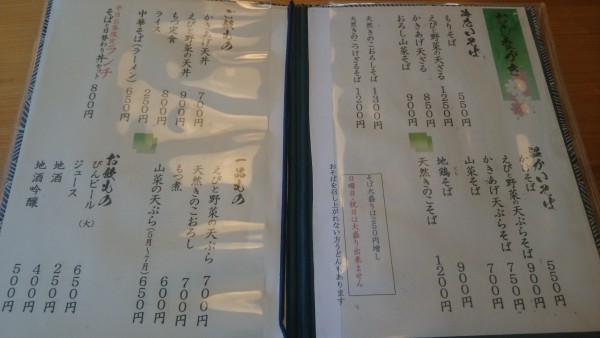 おしながき
冷たいそば
もりそば 550円
えびと野菜の天ざる 1250円
かきあげ天ざる 850円
おろし山菜そば 900円
天然きのこおろしそば 1300円
天然きのこつけざるそば 1200円
温かいそば
かけそば 550円
えびと野菜の天ぷらそば 900円
かきあげ天ぷらそば 750円
山菜そば 700円
地鶏そば 900円
天然きのこそば 1200円
そば大盛りは250円増し
日曜日・祝日は大盛り出来ません
おそばを召し上がれない方うどんもあります
ご飯もの
かきあげ天丼 700円
えびと野菜の天丼 900円
もつ定食 800円
ライス 250円
中華そば(ラーメン) 650円
平日お昼限定ランチ
そばと日替わり丼セット 800円
一品もの
えびと野菜の天ぷら 700円
天然きのこおろし 700円
もつ煮 600円
山菜の天ぷら(5月~7月) 650円
お飲もの
びんビール(大) 650円
ジュース 250円
地酒 400円
地酒吟醸 500円